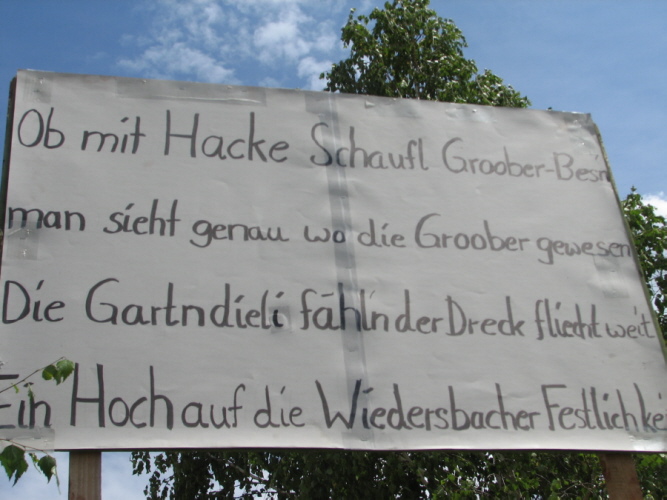 Ob mit Hacke Schaufl Groober-Besn
man sieht genau wo die Groober gewesen
Die Gartndieli fähl'n der Dreck fliecht weit
Ein Hoch auf die Wiedersbacher Festlichkei